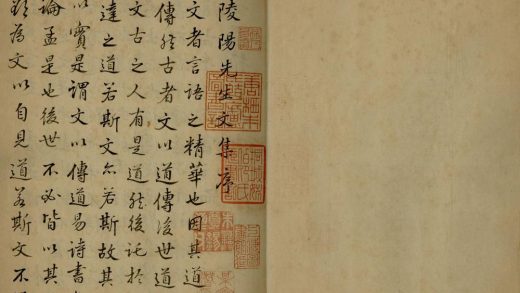 陵陽先生文集序
文者言語之精華也因其道
傳然古者文以道傳後世道
文古之人有是道然後託於
達之道若斯文亦若斯故其
以實是謂文以傳道易詩書
論孟是也後世不必皆以其
為文以自見道若斯文不